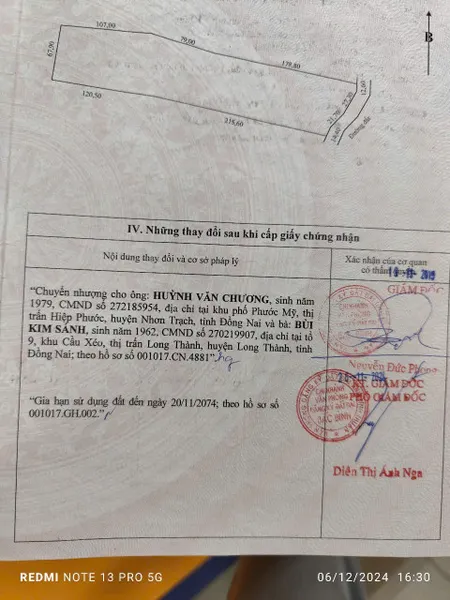 107,00
79,00
179,80
67,00
B
12,60
120,50
215,60
21,70
22,30
14,40
Đường đất
IV. Những thay đổi sau khi cấp giấy chứng nhận
Nội dung thay đổi và cơ sở pháp lý
Xác nhận của cơ quan
có thẩm
GIÁM ĐỐC
“Chuyển nhượng cho ông: HUỲNH VĂN CHƯƠNG, sinh năm
1979, CMND số 272185954, địa chỉ tại khu phố Phước Mỹ, thị
trấn Hiệp Phước, huyện Nhơn Trạch, tỉnh Đồng Nai và bà: BÙI
KIM SÁNH, sinh năm 1962, CMND số 270219907, địa chỉ tại tổ
9, khu Cầu Xéo, thị trấn Long Thành, huyện Long Thành, tỉnh
Đồng Nai; theo hồ sơ số 001017.CN.4881”
Nguyễn Đức Phong
KT. GIÁM ĐỐC
PHÓ GIÁM ĐỐC
“Gia hạn sử dụng đất đến ngày 20/11/2074; theo hồ sơ số
001017.GH.002.”
CHI NHÁNH
VĂN PHÒNG
ĐĂNG KÝ ĐẤT ĐAI
BẮC BÌNH
Diên Thị Ánh Nga
REDMI NOTE 13 PRO 5G
06/12/2024 16:30